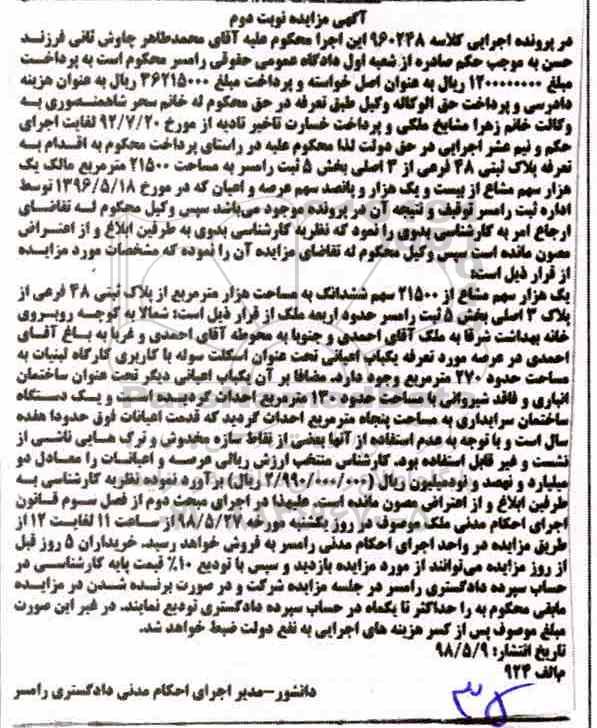 آگهی مزایده نوبت دوم
در پرونده اجرایی کلاسه ۹۶۰۲۴۸ این اجرا محکوم علیه آقای محمدطاهر چاوش ثانی فرزند
حسن به موجب حکم صادره از شعبه اول دادگاه عمومی حقوقی رامسر محکوم است به پرداخت
مبلغ ۱۲۰۰۰۰۰۰۰۰ ریال به عنوان اصل خواسته و پرداخت مبلغ ۳۶۲۱۵۰۰۰ ریال به عنوان هزینه
دادرسی و پرداخت حق الوکاله وکیل طبق تعرفه در حق محکوم له خانم سحر شاهمنصوری به
وکالت خانم زهرا مشایخ ملکی و پرداخت خسارت تاخیر تادیه از مورخ ۹۲/۷/۲۰ لغایت اجرای
حکم و نیم عشر اجرایی در حق دولت لذا محکوم علیه در راستای پرداخت محکوم به اقدام به
تعرفه پلاک ثبتی ۴۸ فرعی از ۳ اصلی بخش ۵ ثبت رامسر به مساحت ۲۱۵۰۰ مترمربع مالک یک
هزار سهم مشاع از بیست و یک هزار و پانصد سهم عرصه و اعیان که در مورخ ۱۳۹۶/۵/۱۸ توسط
اداره ثبت رامسر توقیف و نتیجه آن در پرونده موجود می‌باشد سپس وکیل محکوم له تقاضای
ارجاع امر به کارشناسی بدوی را نمود که نظریه کارشناسی بدوی به طرفین ابلاغ و از اعتراض
مصون مانده است سپس وکیل محکوم له تقاضای مزایده آن را نموده که مشخصات مورد مزایده
از قرار ذیل است:
یک هزار سهم مشاع از ۲۱۵۰۰ سهم ششدانگ به مساحت هزار مترمربع از پلاک ثبتی ۴۸ فرعی از
پلاک ۳ اصلی بخش ۵ ثبت رامسر حدود اربعه ملک از قرار ذیل است: شمالا به کوچه روبروی
خانه بهداشت شرقا به ملک آقای احمدی و جنوبا به محوطه آقای احمدی و غربا به باغ آقای
احمدی در عرصه مورد تعرفه یکباب اعیانی تحت عنوان اسکلت سوله با کاربری کارگاه لبنیات به
مساحت حدود ۲۷۰ مترمربع وجود دارد. مضافا بر آن یکباب اعیانی دیگر تحت عنوان ساختمان
انباری و فاقد شیروانی با مساحت حدود ۱۳۰ مترمربع احداث گردیده است و یک دستگاه
ساختمان سرایداری به مساحت پنجاه مترمربع احداث گردید که قدمت اعیانات فوق حدودا هفده
سال است و با توجه به عدم استفاده از آنها بعضی از نقاط سازه مخدوش و ترک هایی ناشی از
نشست و غیر قابل استفاده بود. کارشناس منتخب ارزش ریالی عرصه و اعیانات را معادل دو
میلیارد و نهصد و نودمیلیون ریال (۲/۹۹۰/۰۰۰/۰۰۰ ریال) برآورد نموده نظریه کارشناسی به
طرفین ابلاغ و از اعتراض مصون مانده است. علیهذا در اجرای مبحث دوم از فصل سوم قانون
اجرای احکام مدنی ملک موصوف در روز یکشنبه مورخه ۹۸/۵/۲۷ از ساعت ۱۱ لغایت ۱۲ از
طریق مزایده در واحد اجرای احکام مدنی رامسر به فروش خواهد رسید. خریداران ۵ روز قبل
از روز مزایده می‌توانند از مورد مزایده بازدید و سپس با تودیع ۱۰٪ قیمت پایه کارشناسی در
حساب سپرده دادگستری رامسر در جلسه مزایده شرکت و در صورت برنده شدن در مزایده
مابقی محکوم به را حداکثر تا یکماه در حساب سپرده دادگستری تودیع نمایند. در غیر این صورت
مبلغ موصوف پس از کسر هزینه های اجرایی به نفع دولت ضبط خواهد شد.
تاریخ انتشار: ۹۸/۵/۹
م‌الف ۹۲۴
دانشور-مدیر اجرای احکام مدنی دادگستری رامسر